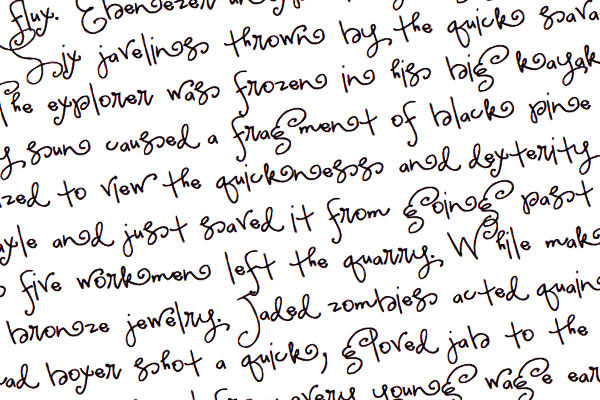 flux. Ebenezer
Six javelins thrown by the quick sava
The explorer was frozen in his big kayak
y sun caused a fragment of black pine
ized to view the quickness and dexterity
ayle and just saved it from going past
s five workmen left the quarry. While mak
bronze jewelry. Jaded zombies acted quain
ad boxer shot a quick, gloved jab to the
every young wage ear